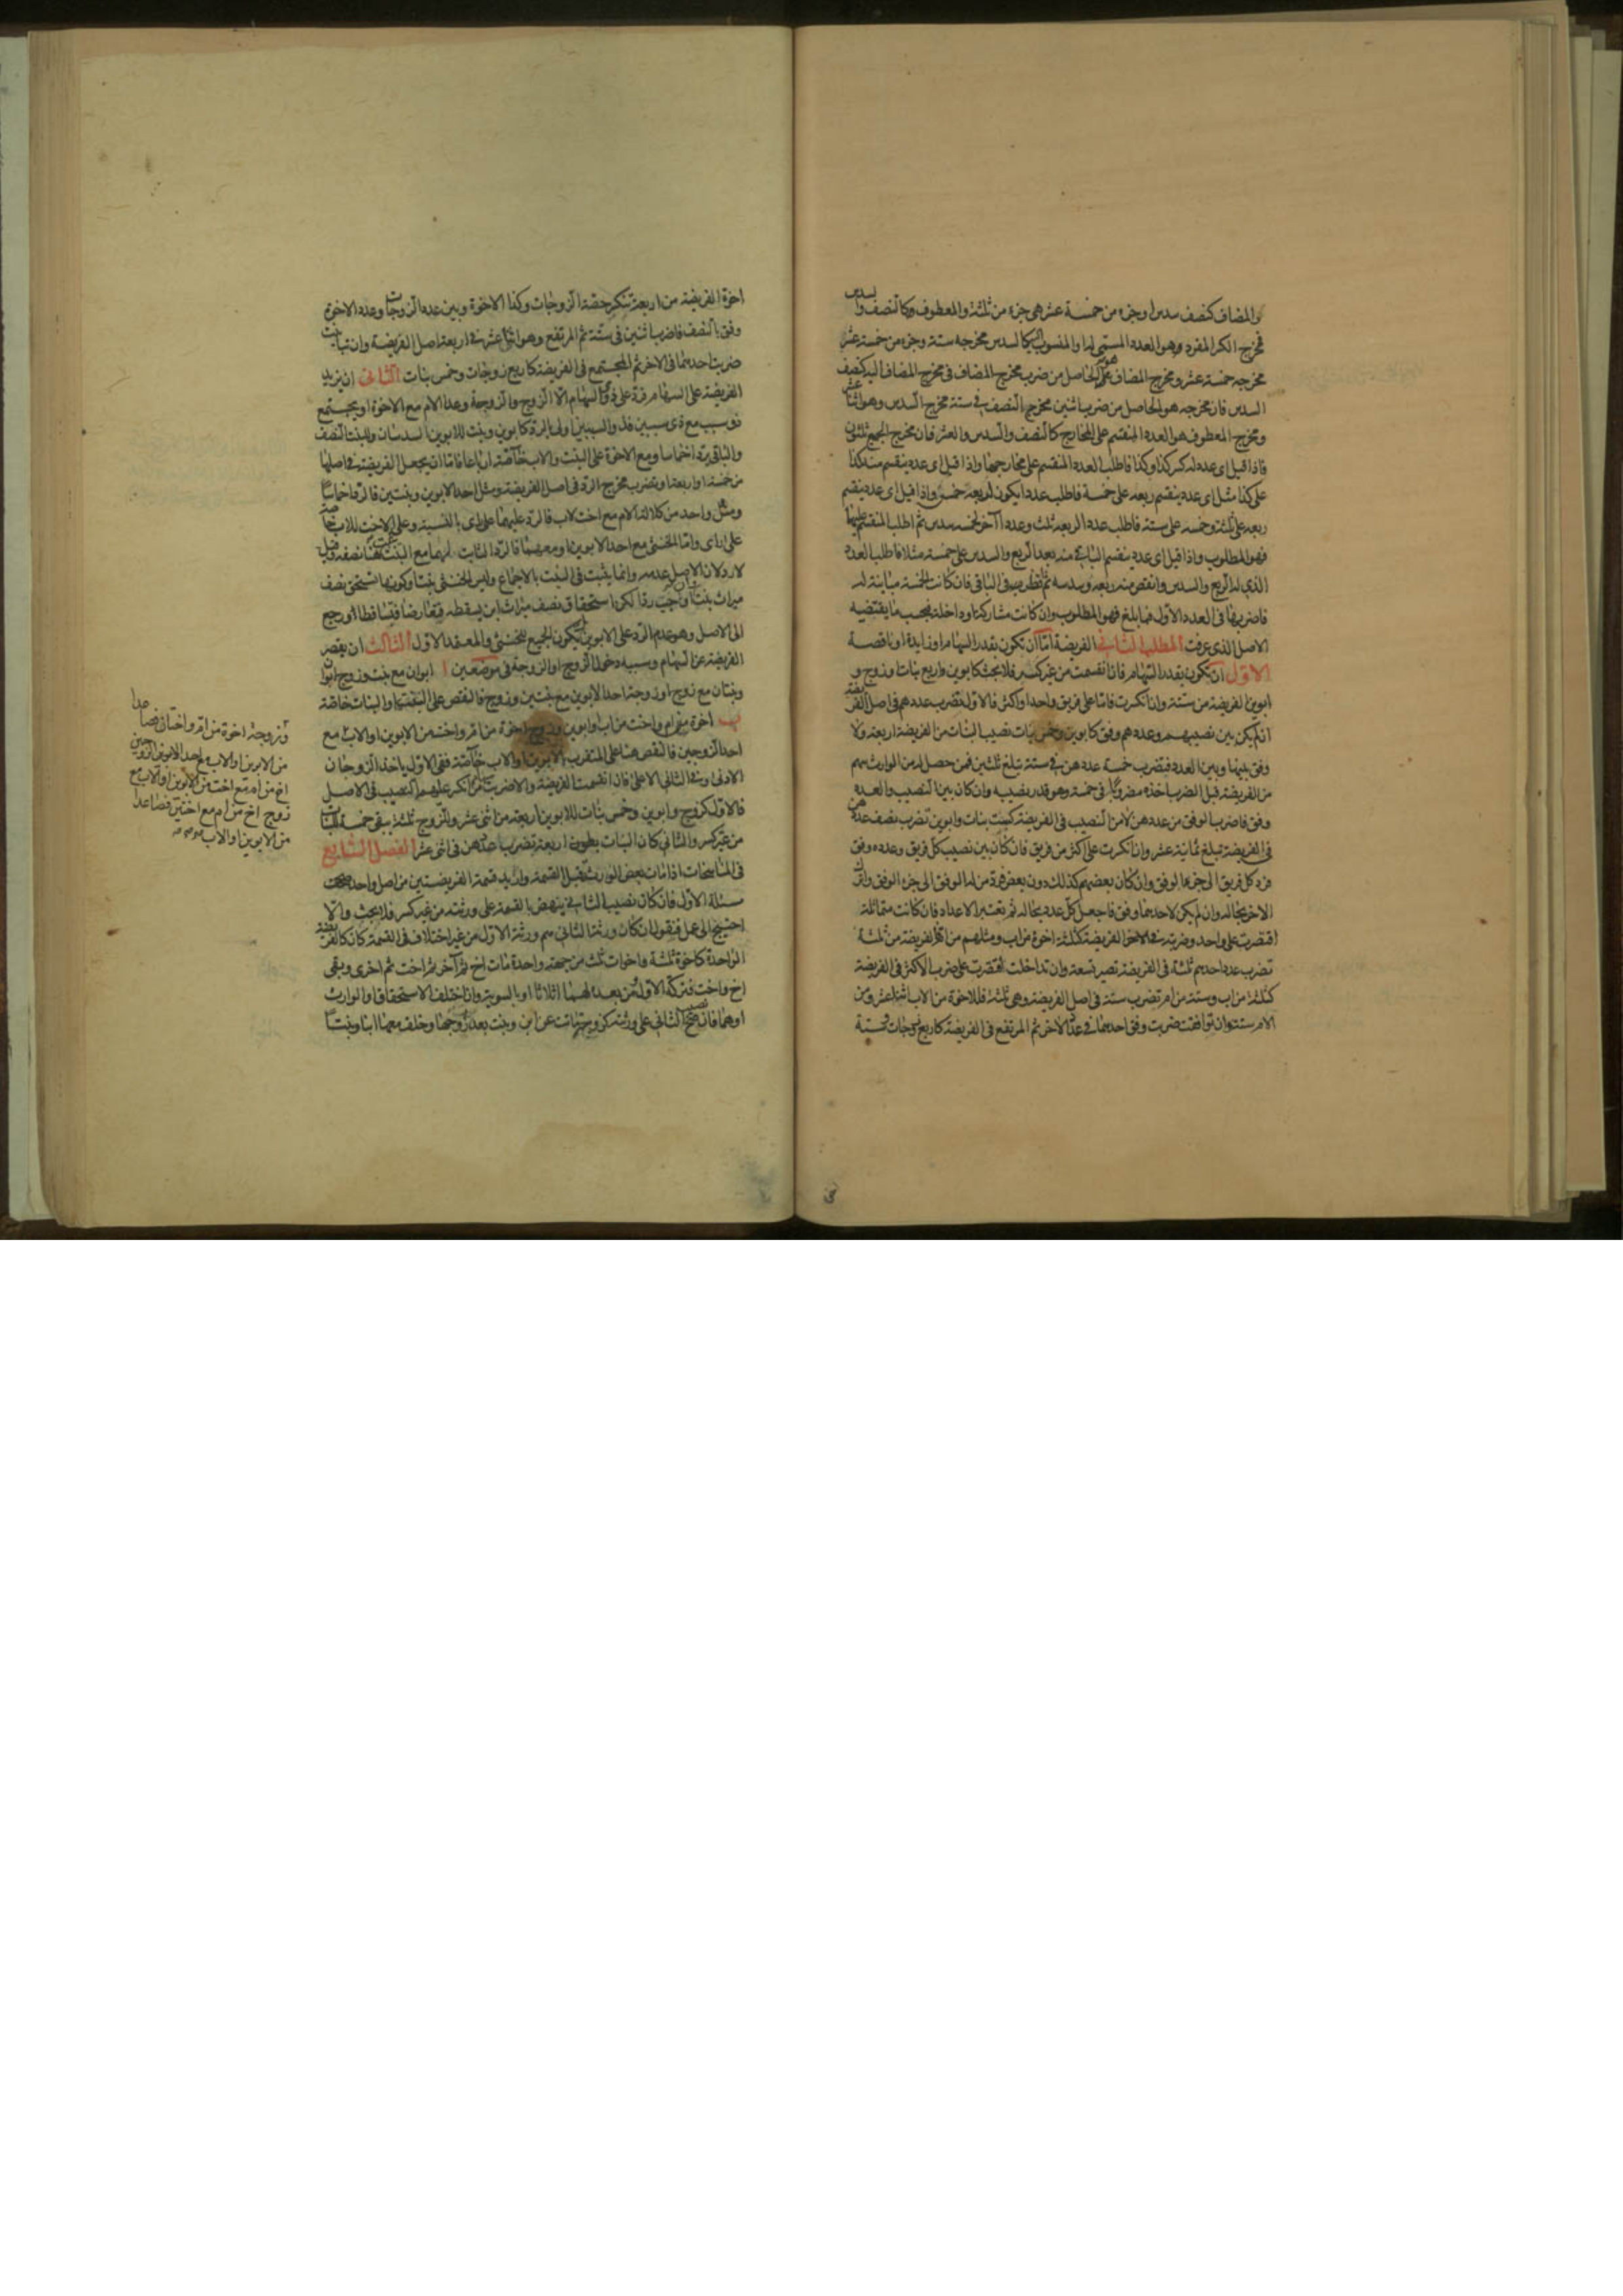 والمضاف كنصف سدس او جزء من خمسة عشر هى جزء من ثلثة والمعطوف كالنصف والسدس
فمخرج الكسر المفرد هو العدد المسمى له او المنسوب اليه كالسدس مخرجه ستة وجزء من خمسة عشر
مخرجه خمسة عشر ومخرج المضاف هو الحاصل من ضرب مخرج المضاف فى مخرج المضاف اليه كنصف
السدس فان مخرجه هو الحاصل من ضرب اثنين مخرج النصف فى ستة مخرج السدس وهو اثنا عشر
ومخرج المعطوف هو العدد المنقسم على المخارج كالنصف والسدس والعشر فان مخرج الجميع ثلثون
فاذا قيل اى عدد له كسر كذا وكذا فاطلب العدد المنقسم على مخارجها واذا قيل اى عدد ينقسم منه كذا
على كذا مثل اى عدد ينقسم ربعه على خمسة فاطلب عددا يكون لربعه خمس واذا قيل اى عدد ينقسم
ربعه على ثلثة وخمسه على ستة فاطلب عددا لربعه ثلث وعددا آخر لخمسه سدس ثم اطلب المنقسم عليهما
فهو المطلوب واذا قيل اى عدد ينقسم الباقى منه بعد الربع والسدس على خمسة مثلا فاطلب العدد
الذى له الربع والسدس وانقص منه ربعه وسدسه ثم تنظر فى الباقى فان كانت الخمسة مباينة له
فاضربها فى العدد الاول فما بلغ فهو المطلوب وان كانت مشاركة او داخلة فبحسب ما يقتضيه
الاصل الذى عرفت المطلب الثانى الفريضة اما ان تكون بقدر السهام او زايدة او ناقصة
الاول ان تكون بقدر السهام فان انقسمت من غير كسر فلا بحث كابوين واربع بنات او زوج و
ابوين الفريضة من ستة وان انكسرت فاما على فريق واحد او اكثر فالاول تضرب عددهم فى اصل الفريضة
ان لم يكن بين نصيبهم وعددهم وفق كابوين وخمس بنات نصيب البنات من الفريضة اربعة ولا
وفق بينها وبين العدد فتضرب خمسة عددهن فى ستة تبلغ ثلثين فمن حصل له من الوارث سهم
من الفريضة قبل الضرب اخذه مضروبا فى خمسة وهو قدر نصيبه وان كان بين النصيب والعدد
وفق فاضرب الوفق من عددهن لا من النصيب فى الفريضة كست بنات وابوين تضرب نصف عددهن
فى الفريضة تبلغ ثمانية عشر وان انكسرت على اكثر من فريق فان كان بين نصيب كل فريق وعدده وفق
فرد كل فريق الى جزء الوفق وان كان بعضهم كذلك دون بعض فرد من له الوفق الى جزء الوفق واترك
الاخر بحاله وان لم يكن لاحدهما وفق فاجعل كل عدد بحاله ثم تعتبر الاعداد فان كانت متماثلة
اقتصرت على واحد وضربته فى الفريضة كثلثة اخوة من اب ومثلهم من ام الفريضة من ثلثة
تضرب عدد احدهم ثلثة فى الفريضة تصير تسعة وان تداخلت اقتصرت على ضرب الاكثر فى الفريضة
كثلثة من اب وستة من ام تضرب ستة فى اصل الفريضة وهى ثلثة فللاخوة من الاب اثنا عشر ومن
الام ستة وان توافقت ضربت وفق احدهما فى عدد الاخر ثم المرتفع فى الفريضة كاربع زوجات وستة
اخوة الفريضة من اربعة تنكسر حصة الزوجات وكذا الاخوة وبين عدد الزوجات وعدد الاخوة
وفق بالنصف فاضرب اثنين فى ستة ثم المرتفع وهو اثنا عشر فى اربعة اصل الفريضة وان تباينت
ضربت احدهما فى الاخر ثم المجتمع فى الفريضة كاربع زوجات وخمس بنات الثانى ان يزيد
الفريضة على السهام فترد على ذوى السهام الا الزوج والزوجة وعدا الام مع الاخوة او يجتمع
ذو سبب مع ذى سببين فذو السببين اولى بالرد كابوين وبنت للابوين السدسان وللبنت النصف
والباقى يرد اخماسا ومع الاخوة على البنت والاب خاصة ارباعا فاما ان يجعل الفريضة فى اصلها
من خمسة او اربعة او تضرب مخرج الرد فى اصل الفريضة ومثل احد الابوين وبنتين فالرد اخماسا
ومثل واحد من كلالة الام مع اخت لاب فالرد عليهما على راى بالنسبة وعلى الاخت للاب خاصة
على راى واما الخنثى مع احد الابوين او معهما فالرد الثابت لهما مع البنت يثبت هنا نصفه وقيل
لا رد لان الاصل عدمه وانما يثبت فى البنت بالاجماع وليس الخنثى بنتا وكونها تستحق نصف
ميراث بنت اوجب ردا لكن استحقاق نصف ميراث ابن يسقطه فتعارضا فتساقطا ورجع
الى الاصل وهو عدم الرد على الابوين فيكون الجميع للخنثى والمعتمد الاول الثالث ان يقصر
الفريضة عن السهام وسببه دخول الزوج او الزوجة فى موضعين ا ابوان مع بنت وزوج ابوان
وبنتان مع زوج او زوجة احد الابوين مع بنتين وزوج فالنقص على البنت او البنات خاصة
ب اخوة من ام واخت من اب او ابوين وزوج اخوة من ام واخت من الابوين او الاب مع
احد الزوجين فالنقص هنا على المتقرب بالابوين او الاب خاصة ففى الاول ياخذ الزوجان
الادنى وفى الثانى الاعلى فان انقسمت الفريضة والا ضربت من انكسر عليهم النصيب فى الاصل
فالاول كزوج وابوين وخمس بنات للابوين اربعة من اثنى عشر وللزوج ثلثة يبقى خمسة للبنات
من غير كسر والثانى كان البنات اربعة تضرب عددهن فى اثنى عشر الفصل السابع
فى المناسخات اذا مات بعض الوراث قبل القسمة واريد قسمة الفريضتين من اصل واحد صححت
مسئلة الاول فان كان نصيب الثانى ينهض بالقسمة على ورثته من غير كسر فلا بحث والا
احتيج الى عمل فنقول ان كان ورثة الثانى هم ورثة الاول من غير اختلاف فى القسمة كان كالفريضة
الواحدة كاخوة ثلثة واخوات ثلث من جهة واحدة مات اخ ثم آخر ثم اخت ثم اخرى وبقى
اخ واخت فتركة الاول ومن بعده لهما اثلاثا او بالسوية وان اختلف الاستحقاق او الوارث
او هما فان نهض نصيب الثانى على ورثته كزوجة ماتت عن ابن وبنت بعد زوجها وخلف معهما ابنا وبنتا
وزوجة اخوة من ام واختان فصاعدا
من الابوين او الاب مع احد الزوجين
اخ من ام مع اخت من الابوين او الاب مع
زوج اخ من ام مع اختين فصاعدا
من الابوين او الاب